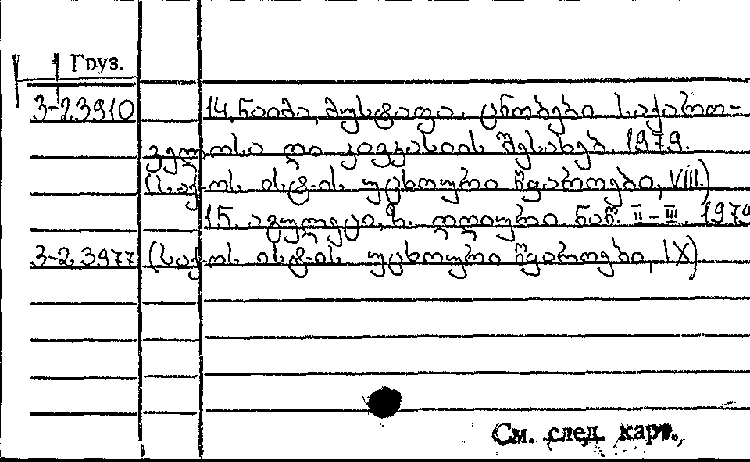 Груз.
3-23910 14. ნაიმა, მუსტაფა. ცნობები საქართ-
ველოსა და კავკასიის შესახებ. 1979.
(საქ-ოს ისტ-ის უცხოური წყაროები, VIII)
15. ნაწ. II-III. 1979
3-23977 (საქ-ოს ისტ-ის უცხოური წყაროები, IX)
См. след. карт.